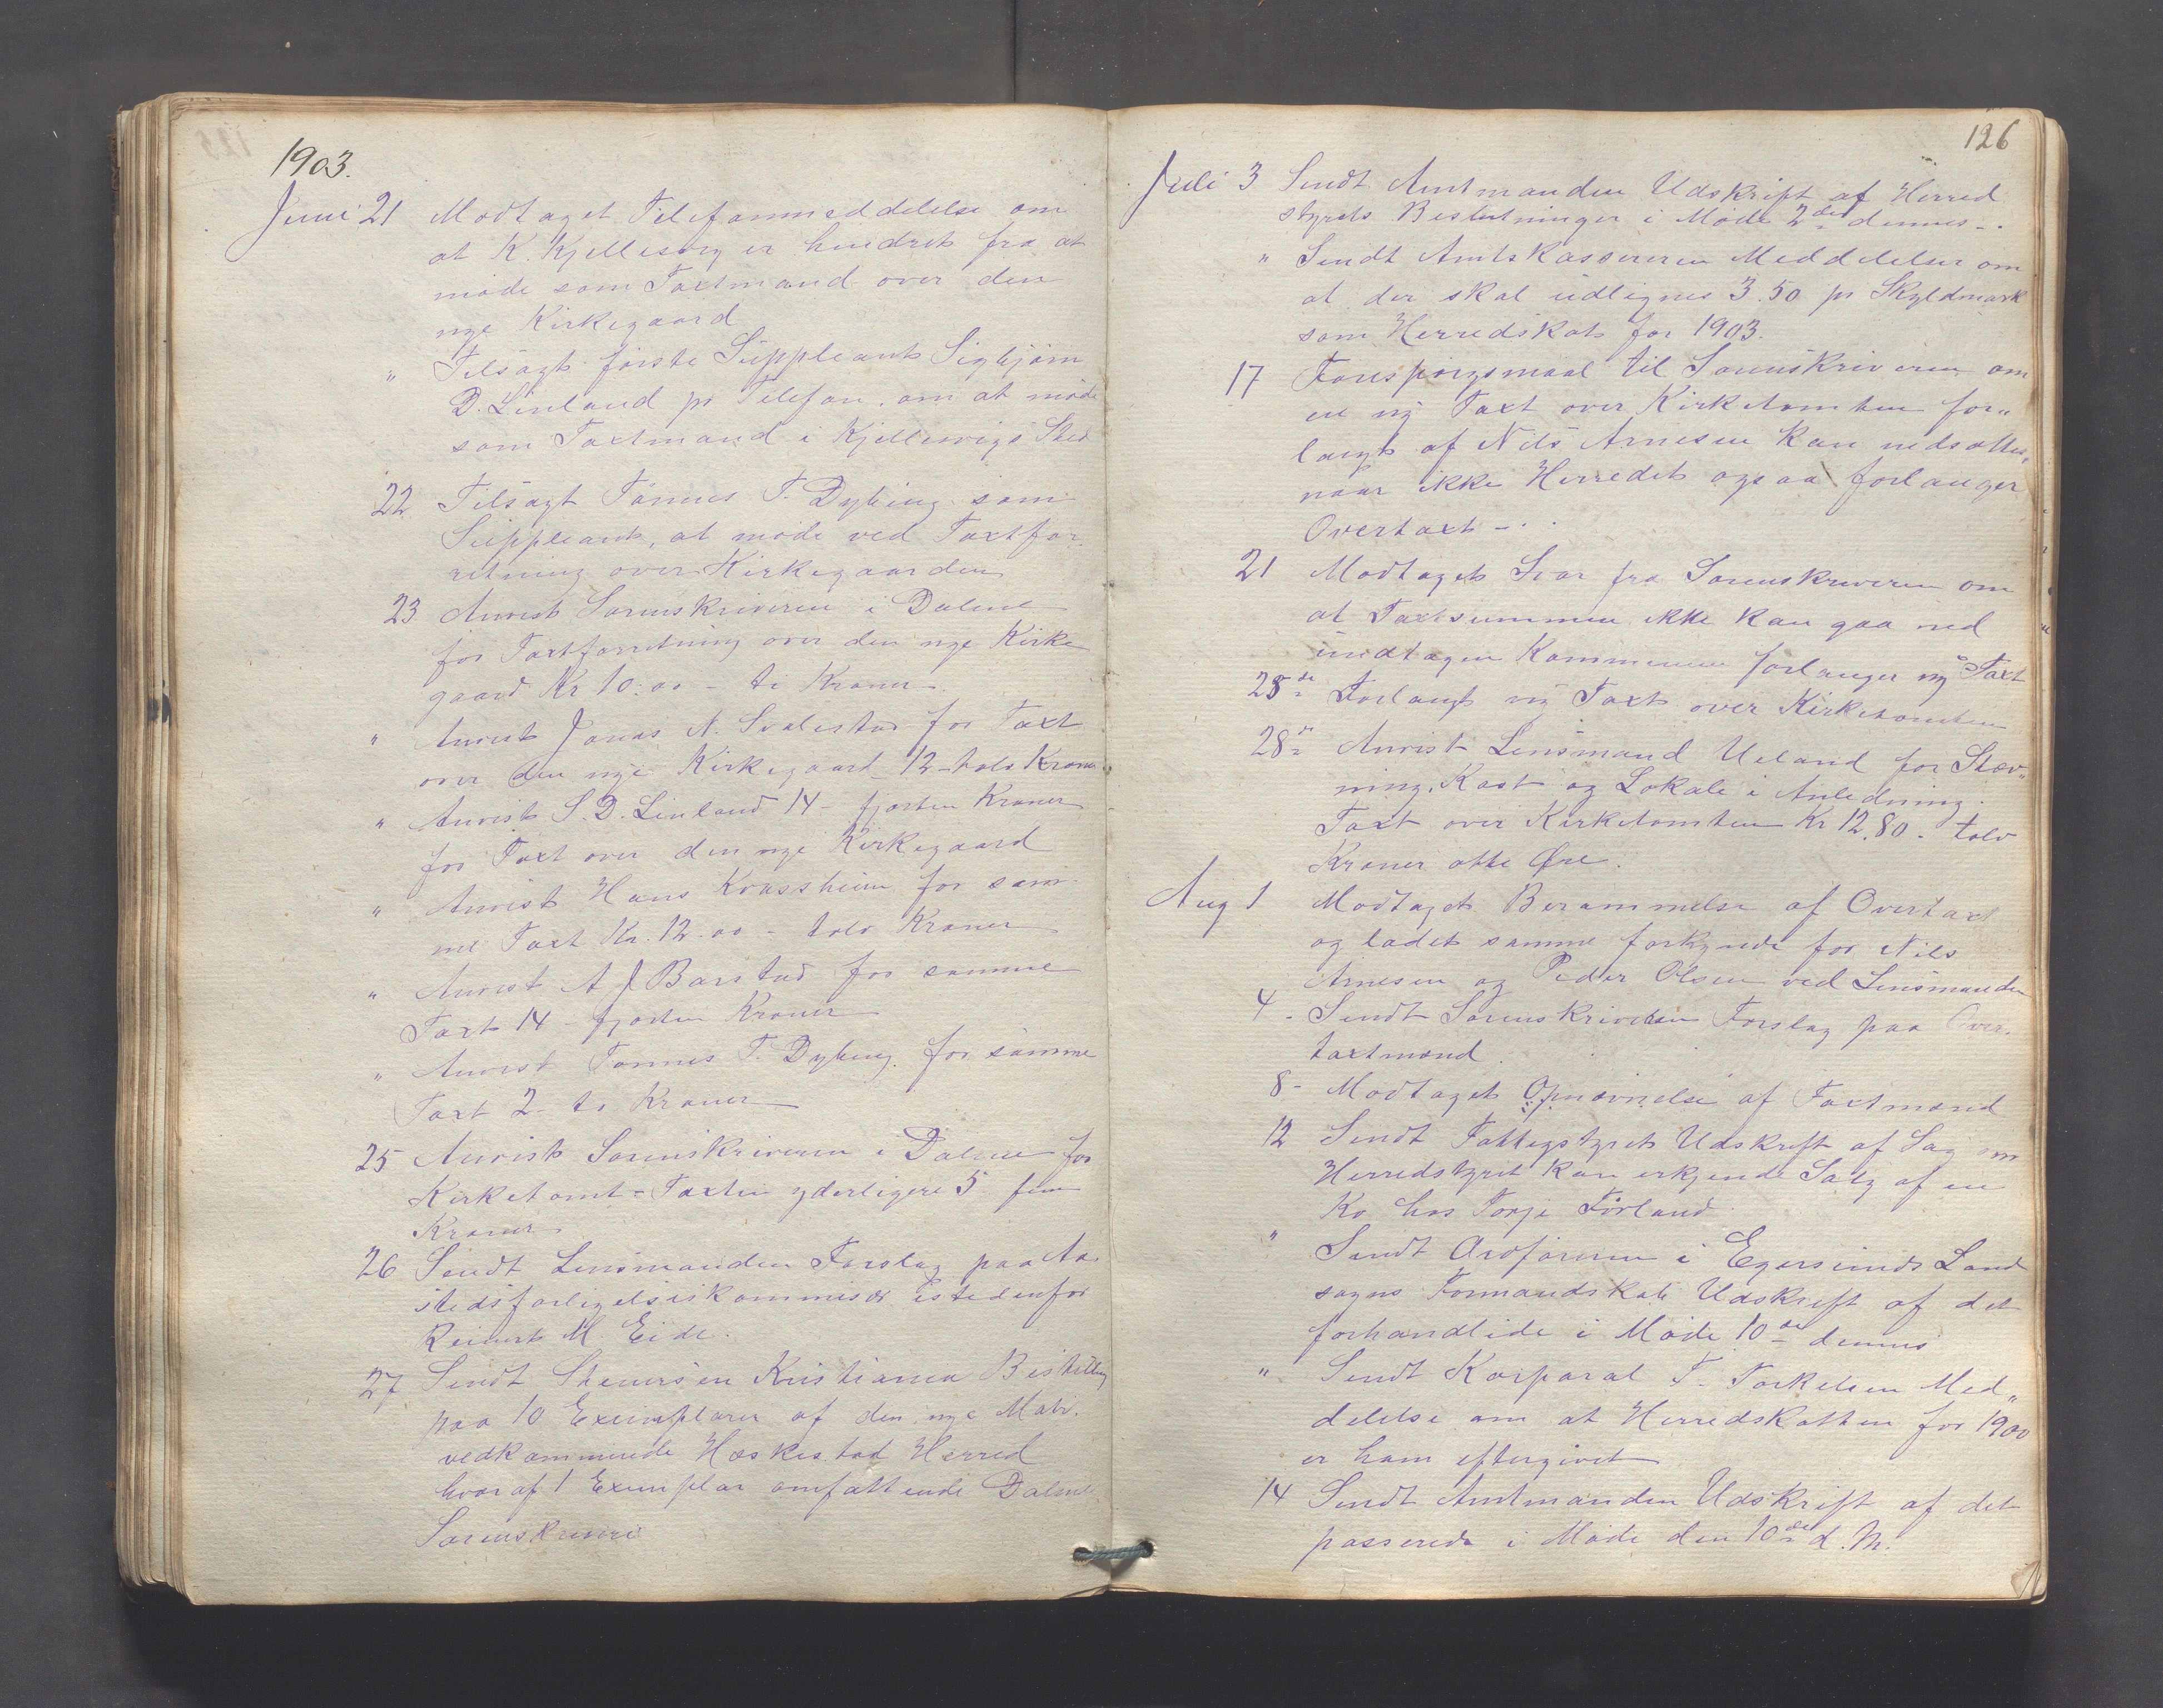 1903.
Juni 21 Modtaget Telefonmeddelelse om
at K. Kjellesvig er hindret fra at
møde som Taxtmand over den
nye Kirkegaard
" Tilsagt første Suppleant Sigbjørn
D. Linland pr Telefon. om at møde
som Taxtmand i Kjellesvigs Sted
22. Tilsagt Tønnes T. Dybing som
Suppleant, at møde ved Taxtfor
retning over Kirkegaarden
23 Anvist Sorenskriveren i Dalene
for Taxtforretning over den nye Kirke
gaard Kr 10.00 - ti Kroner
" Anvist Jonas N. Svalestad for Taxt
over den nye Kirkegaard 12 - tolv Kroner
" Anvist S. D. Linland 14 - fjorten Kroner
for Taxt over den nye Kirkegaard
" Anvist Hans Kvassheim for sam
me Taxt Kr. 12.00 - tolv Kroner
" Anvist A J Barstad for samme
Taxt 14 - fjorten Kroner
" Anvist Tønnes T. Dybing. for samme
Taxt 2 - to Kroner
25 Anvist Sorenskriveren i Dalene for
Kirketomt-Taxten yderligere 5 fem
Kroner
26 Sendt Lensmanden Forslag paa Aa
stedsforligelseskommisær istedenfor
Reinert M. Eide.
27 Sendt Stenersen Kristiania Bestilling
paa 10 Exemplarer af den nye Matr.
vedkommende Heskestad Herred
hvoraf 1 Exemplar omfattende Dalene
Sorenskriveri
126
Juli 3 Sendt Amtmanden Udskrift af Herred
styrets Beslutninger i Møde 2den dennes - .
" Sendt Amtskassereren Meddelelse om
at der skal udlignes 3.50 pr Skyldmark
som Herredskat for 1903.
17 Forespørgsmaal til Sorenskriveren om
en ny Taxt over Kirketomten for„
langt af Nils Arnesen kan nedsættes,
naar ikke Herredet ogsaa forlanger
Overtaxt - . .
21 Modtaget Svar fra Sorenskriveren om
at Taxtsummen ikke kan gaa ned
undtagen Kommunen forlanger ny Taxt
28de Forlangt ny Taxt over Kirketomten
28de Anvist Lensmand Ueland for Stæv„
ning, Kost og Lokale i Anledning.
Taxt over Kirketomten Kr 12.80 - tolv
Kroner otte Øre.
Aug 1 Modtaget Berammelse af Overtaxt
og ladet samme forkynde for Nils
Arnesen og Peder Olsen ved Lensmanden
4 - Sendt Sorenskriveren Forslag paa Over.
taxtmænd.
8 - Modtaget Opnævnelse af Taxtmænd
12 Sendt Fattigstyret Udskrift af Sag om
Herredstyret kan erkjende Salg af en
Ko hos Torje Førland
" Sendt Ordføreren i Egersunds Land
sogns Formandskab Udskrift af det
forhandlede i Møde 10de dennes
" Sendt Korporal T. Torkelsen Med„
delelse om at Herredskatten for 1900
er ham eftergivet
14 Sendt Amtmanden Udskrift af det
passerede i Møde den 10de d. M.